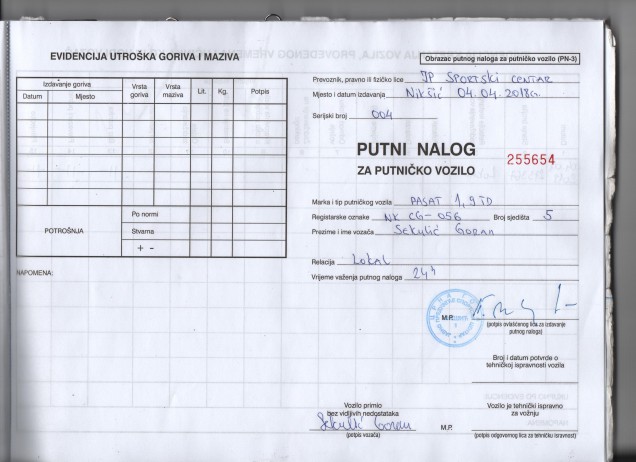 EVIDENCIJA UTROŠKA GORIVA I MAZIVA
Izdavanje goriva
Datum Mjesto Vrsta goriva Vrsta maziva Lit. Kg. Potpis
POTROŠNJA
Po normi
Stvarna
+ -
NAPOMENA:
Obrazac putnog naloga za putničko vozilo (PN-3)
Prevoznik, pravno ili fizičko lice JP SPORTSKI CENTAR
Mjesto i datum izdavanja Nikšić 04.04.2018G.
Serijski broj 004
PUTNI NALOG
ZA PUTNIČKO VOZILO
255654
Marka i tip putničkog vozila PASAT 1,9 TD
Registarske oznake NK CG-056 Broj sjedišta 5
Prezime i ime vozača Sekulić Goran
Relacija LOKAL
Vrijeme važenja putnog naloga 24h
M.P.
(potpis ovlašćenog lica za izdavanje
putnog naloga)
Broj i datum potvrde o
tehničkoj ispravnosti vozila
Vozilo primio
bez vidljivih nedostataka
Sekulić Goran
(potpis vozača)
Vozilo je tehnički ispravno
za vožnju
M.P.
(potpis odgovornog lica za tehničku isravnost)